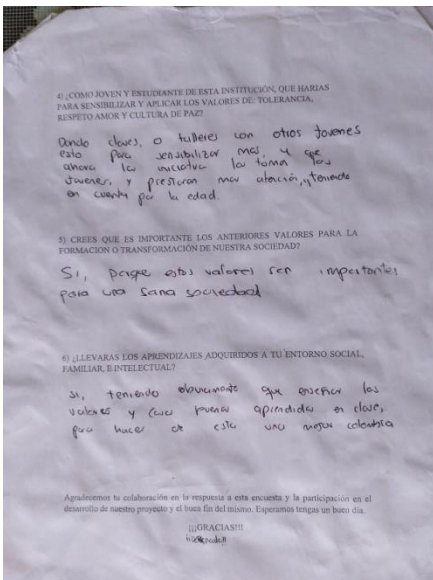 4) ¿COMO JOVEN Y ESTUDIANTE DE ESTA INSTITUCIÓN, QUE HARIAS
PARA SENSIBILIZAR Y APLICAR LOS VALORES DE: TOLERANCIA,
RESPETO AMOR Y CULTURA DE PAZ?
Dando clases, o talleres con otros Jovenes
esto para sensibilizar mas, y que
ahora la iniciativa la toman los
Jovenes, y prestaran mas atención, y teniendo
en cuenta por la edad.
5) CREES QUE ES IMPORTANTE LOS ANTERIORES VALORES PARA LA
FORMACION O TRANSFORMACIÓN DE NUESTRA SOCIEDAD?
Si, porque estos valores son importantes
para una sana sociedad
6) ¿LLEVARAS LOS APRENDIZAJES ADQUIRIDOS A TU ENTORNO SOCIAL,
FAMILIAR, E INTELECTUAL?
si, teniendo obviamente que enseñar los
valores y cosas buenas aprendidas en clase,
para hacer de esta una mejor colombia
Agradecemos tu colaboración en la respuesta a esta encuesta y la participación en el
desarrollo de nuestro proyecto y el buen fin del mismo. Esperamos tengas un buen día.
¡¡¡GRACIAS!!!